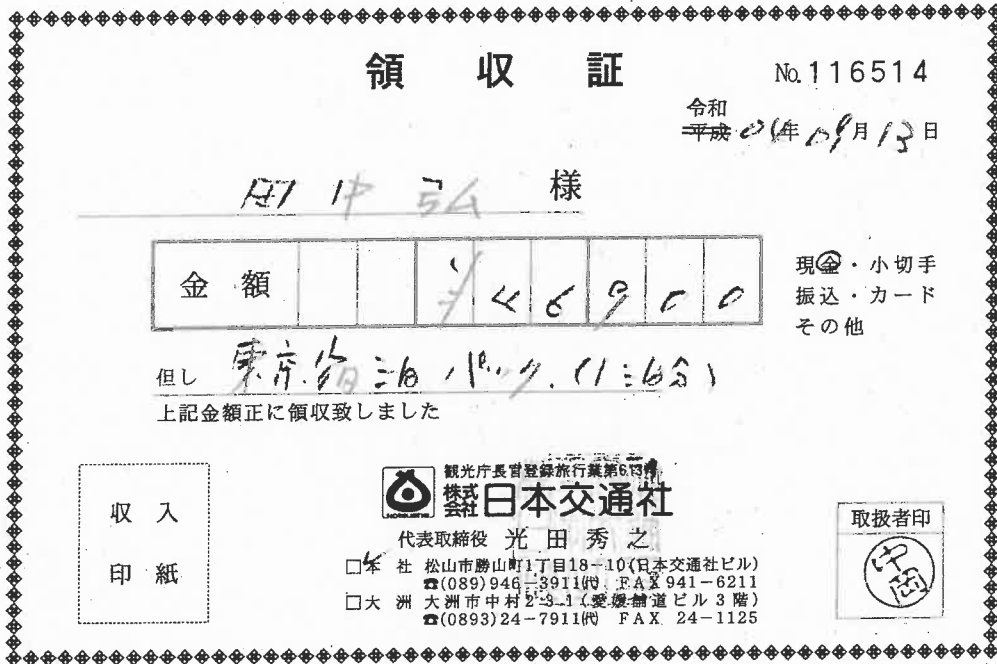 領収証
No.116514
令和
平成 04年 09月 13日
田中 弘 様
金額 ¥46900
現金・小切手
振込・カード
その他
但し 東京 宿泊パック (1泊分)
上記金額正に領収致しました
収入
印紙
観光庁長官登録旅行業第613号
株式会社 日本交通社
代表取締役 光田秀之
□本 社 松山市勝山町1丁目18-10(日本交通社ビル)
☎(089)946-3911㈹ FAX 941-6211
□大 洲 大洲市中村2-3-1(愛媛舗道ビル3階)
☎(0893)24-7911㈹ FAX 24-1125
取扱者印
中岡